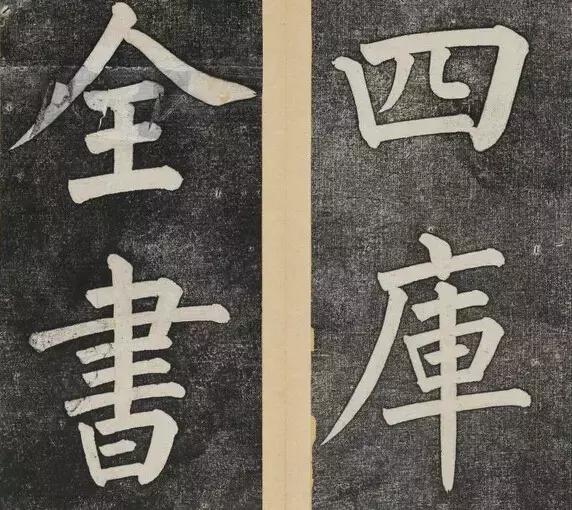 四庫
全書